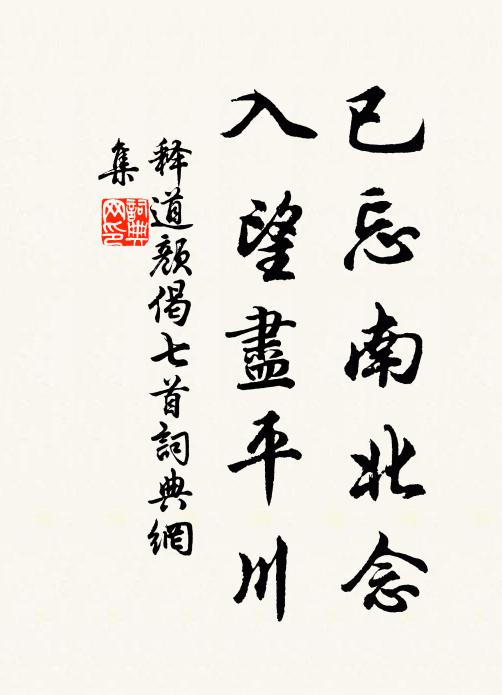 已忘南北念
入望盡平川
释道顏偈七首詞典網
集
詞典
网印